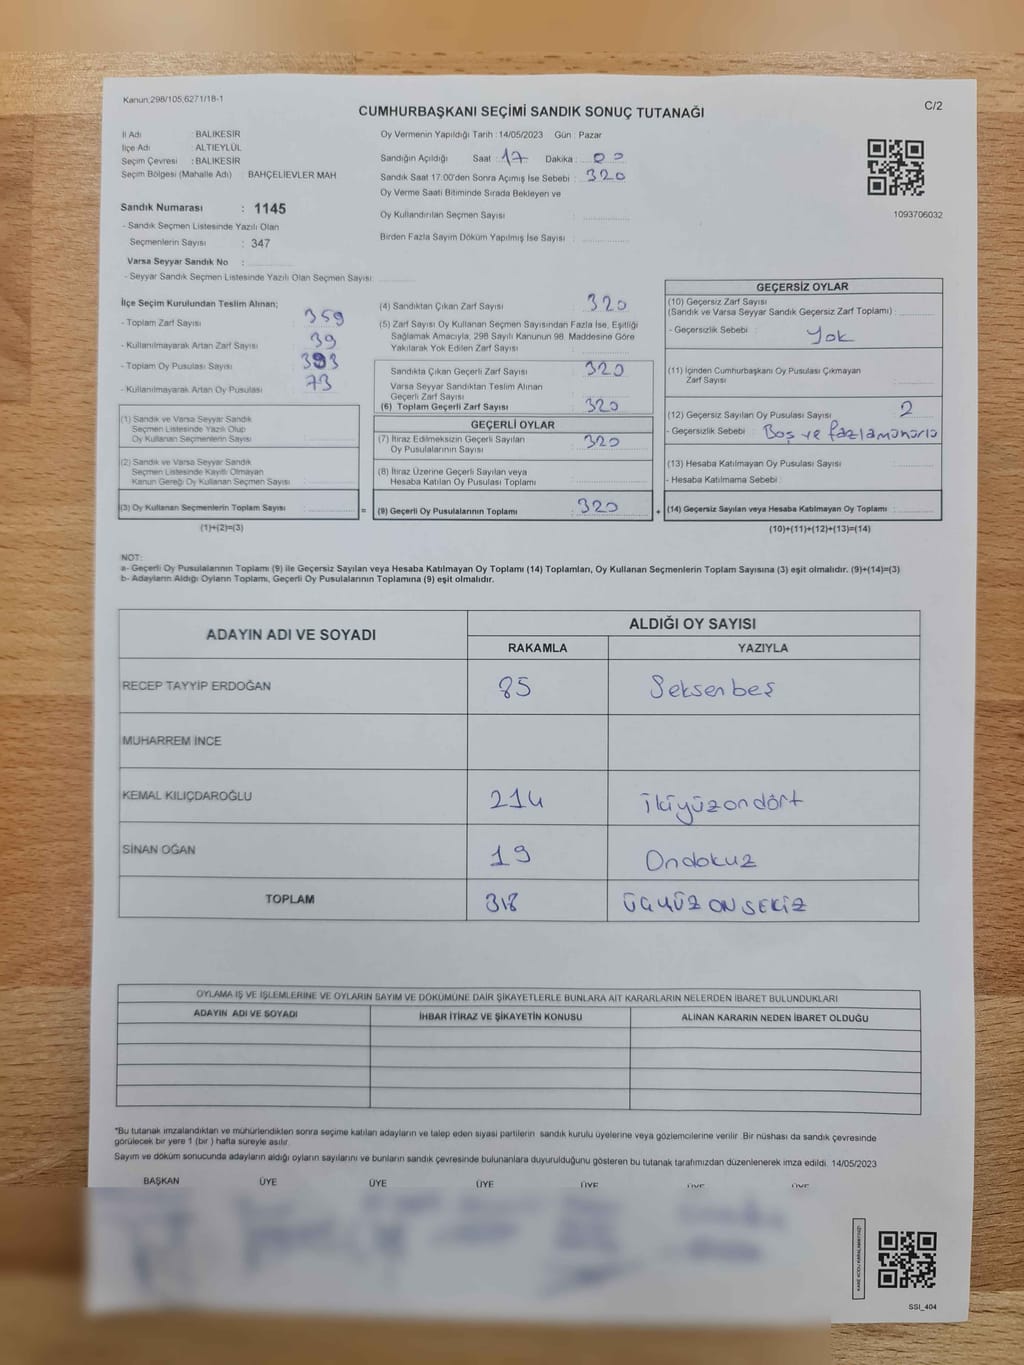 Kanun:298/105,6271/18-1
C/2
CUMHURBAŞKANI SEÇİMİ SANDIK SONUÇ TUTANAĞI
İl Adı : BALIKESİR
İlçe Adı : ALTIEYLÜL
Seçim Çevresi : BALIKESİR
Seçim Bölgesi (Mahalle Adı) : BAHÇELİEVLER MAH
Sandık Numarası : 1145
- Sandık Seçmen Listesinde Yazılı Olan
Seçmenlerin Sayısı : 347
Varsa Seyyar Sandık No :
- Seyyar Sandık Seçmen Listesinde Yazılı Olan Seçmen Sayısı:
Oy Vermenin Yapıldığı Tarih : 14/05/2023 Gün : Pazar
Sandığın Açıldığı Saat : 17 Dakika : 00
Sandık Saat 17:00'den Sonra Açımış İse Sebebi : 320
Oy Verme Saati Bitiminde Sırada Bekleyen ve
Oy Kullandırılan Seçmen Sayısı :
Birden Fazla Sayım Döküm Yapılmış İse Sayısı :
1093706032
İlçe Seçim Kurulundan Teslim Alınan;
- Toplam Zarf Sayısı : 359
- Kullanılmayarak Artan Zarf Sayısı : 39
- Toplam Oy Pusulası Sayısı : 393
- Kullanılmayarak Artan Oy Pusulası : 73
(1) Sandık ve Varsa Seyyar Sandık
Seçmen Listesinde Yazılı Olup
Oy Kullanan Seçmenlerin Sayısı :
(2) Sandık ve Varsa Seyyar Sandık
Seçmen Listesinde Kayıtlı Olmayan
Kanun Gereği Oy Kullanan Seçmen Sayısı :
(3) Oy Kullanan Seçmenlerin Toplam Sayısı :
(1)+(2)=(3)
=
(4) Sandıktan Çıkan Zarf Sayısı : 320
(5) Zarf Sayısı Oy Kullanan Seçmen Sayısından Fazla İse, Eşitliği
Sağlamak Amacıyla, 298 Sayılı Kanunun 98. Maddesine Göre
Yakılarak Yok Edilen Zarf Sayısı :
Sandıkta Çıkan Geçerli Zarf Sayısı : 320
Varsa Seyyar Sandıktan Teslim Alınan
Geçerli Zarf Sayısı :
(6) Toplam Geçerli Zarf Sayısı : 320
GEÇERLİ OYLAR
(7) İtiraz Edilmeksizin Geçerli Sayılan : 320
Oy Pusulasının Sayısı
(8) İtiraz Üzerine Geçerli Sayılan veya
Hesaba Katılan Oy Pusulası Toplamı :
(9) Geçerli Oy Pusulalarının Toplamı : 320
+
GEÇERSİZ OYLAR
(10) Geçersiz Zarf Sayısı
(Sandık ve Varsa Seyyar Sandık Geçersiz Zarf Toplamı) :
- Geçersizlik Sebebi : Yok
(11) İçinden Cumhurbaşkanı Oy Pusulası Çıkmayan
Zarf Sayısı :
(12) Geçersiz Sayılan Oy Pusulası Sayısı : 2
- Geçersizlik Sebebi : Boş ve fazla
(13) Hesaba Katılmayan Oy Pusulası Sayısı :
- Hesaba Katılmama Sebebi :
(14) Geçersiz Sayılan veya Hesaba Katılmayan Oy Toplamı :
(10)+(11)+(12)+(13)=(14)
NOT:
a- Geçerli Oy Pusulalarının Toplamı (9) ile Geçersiz Sayılan veya Hesaba Katılmayan Oy Toplamı (14) Toplamları, Oy Kullanan Seçmenlerin Toplam Sayısına (3) eşit olmalıdır. (9)+(14)=(3)
b- Adayların Aldığı Oyların Toplamı, Geçerli Oy Pusulalarının Toplamına (9) eşit olmalıdır.
ADAYIN ADI VE SOYADI ALDIĞI OY SAYISI
RAKAMLA YAZIYLA
RECEP TAYYİP ERDOĞAN 85 Seksenbeş
MUHARREM İNCE
KEMAL KILIÇDAROĞLU 214 ikiyüzondört
SİNAN OĞAN 19 Ondokuz
TOPLAM 318 ÜÇYÜZ ONSEKİZ
OYLAMA İŞ VE İŞLEMLERİNE VE OYLARIN SAYIM VE DÖKÜMÜNE DAİR ŞİKAYETLERLE BUNLARA AİT KARARLARIN NELERDEN İBARET BULUNDUKLARI
ADAYIN ADI VE SOYADI İHBAR İTİRAZ VE ŞİKAYETİN KONUSU ALINAN KARARIN NEDEN İBARET OLDUĞU
*Bu tutanak imzalandıktan ve mühürlendikten sonra seçime katılan adayların ve talep eden siyasi partilerin sandık kurulu üyelerine veya gözlemcilerine verilir. Bir nüshası da sandık çevresinde
görülecek bir yere 1 (bir ) hafta süreyle asılır.
Sayım ve döküm sonucunda adayların aldığı oyların sayılarını ve bunların sandık çevresinde bulunanlara duyurulduğunu gösteren bu tutanak tarafımızdan düzenlenerek imza edildi. 14/05/2023
BAŞKAN ÜYE ÜYE ÜYE ÜYE ÜYE ÜYE
SSI_404